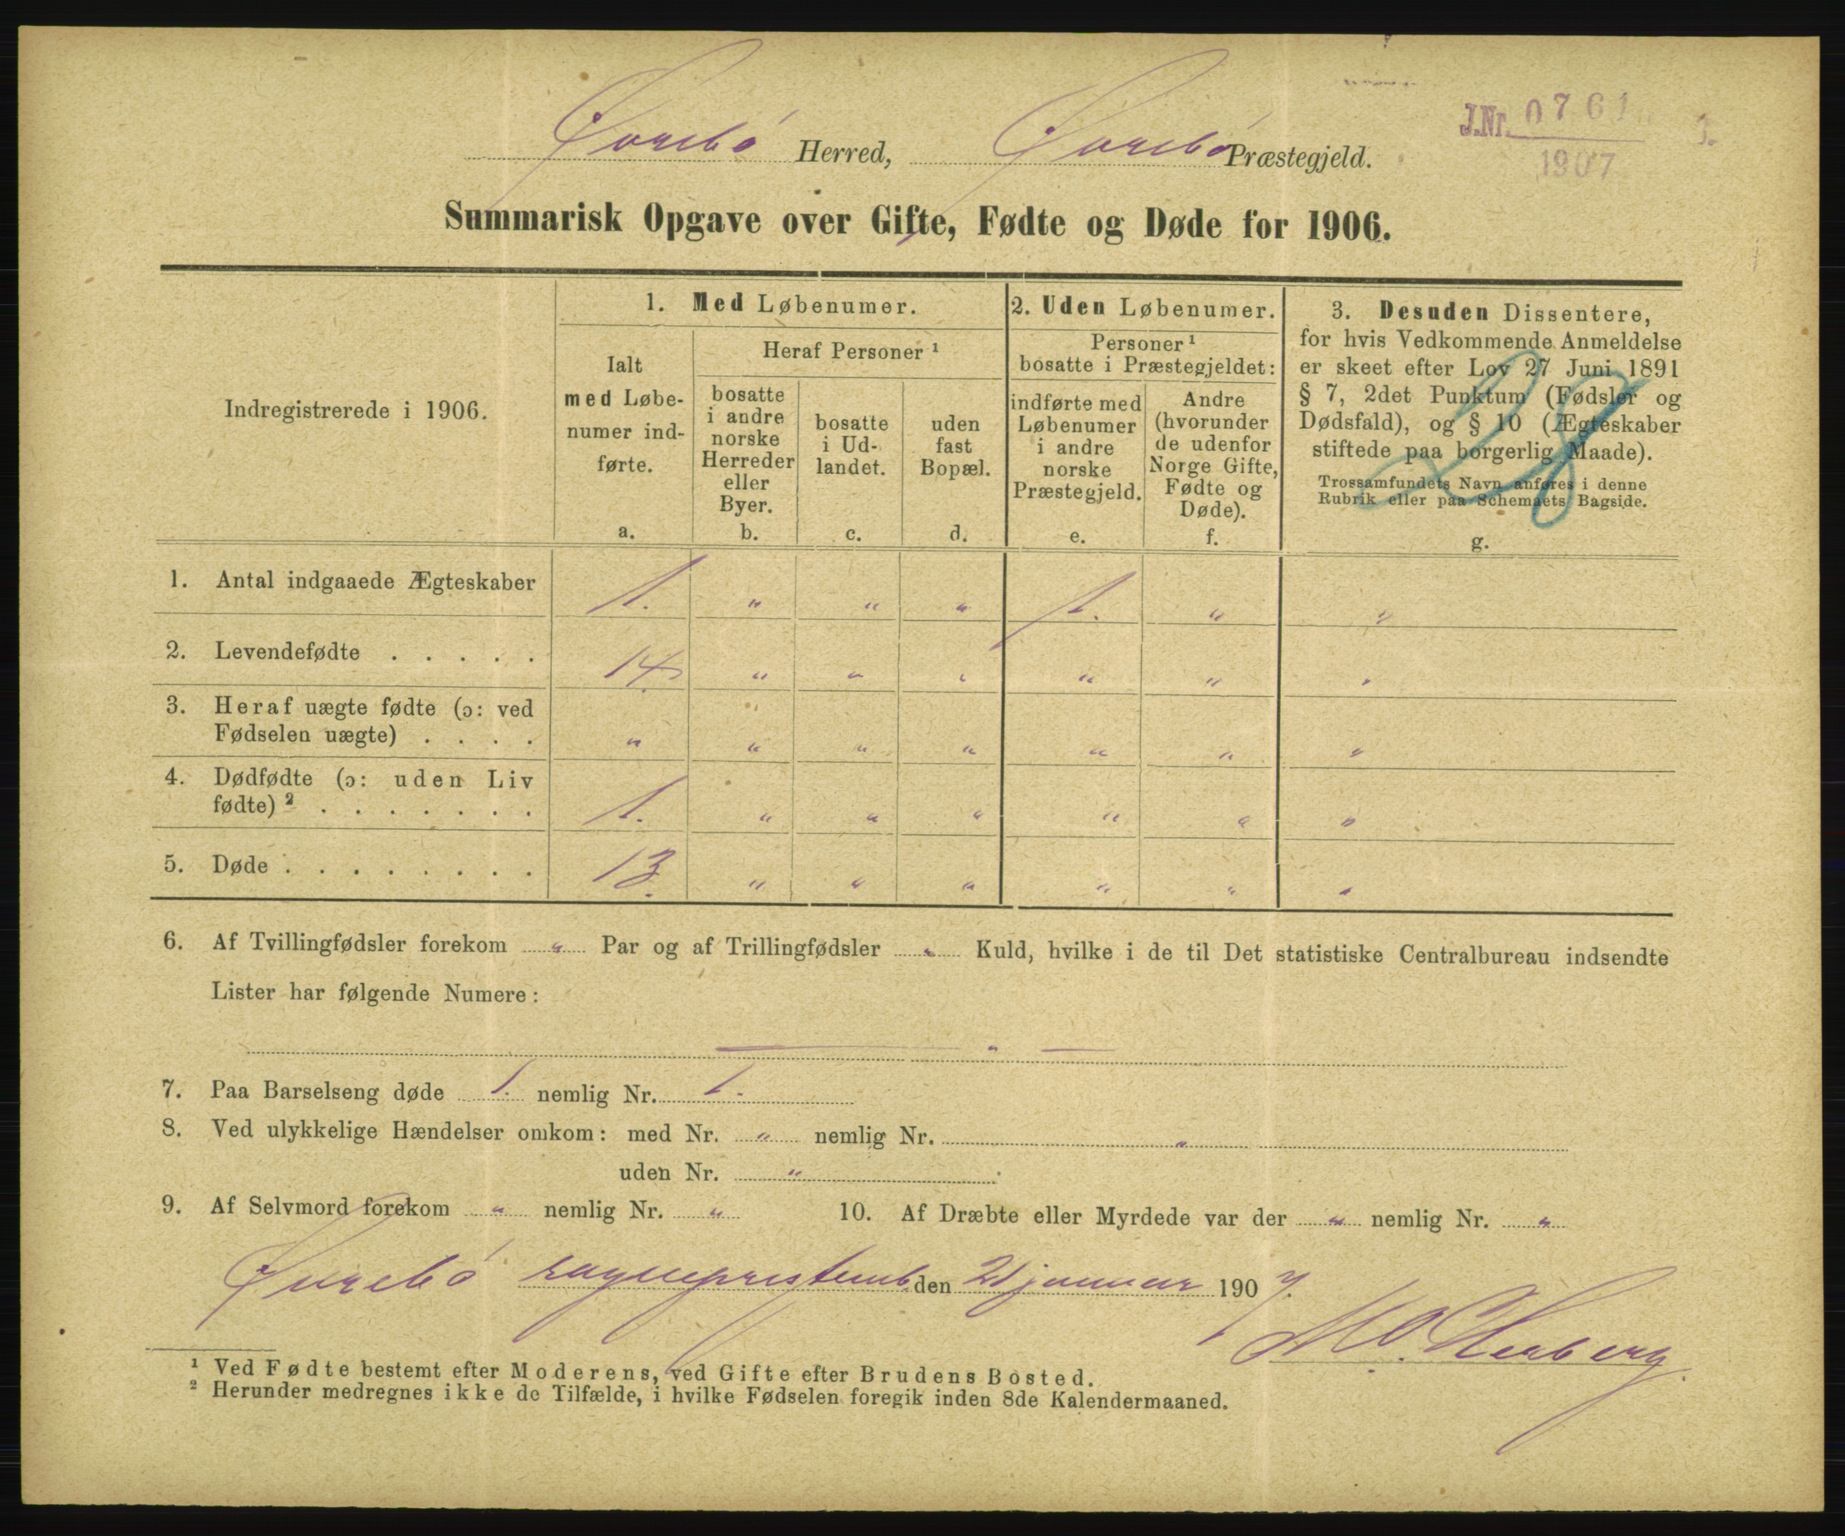 Øvrebø Herred, Øvrebø Præstegjeld.
J.Nr. 0761
1907
Summarisk Opgave over Gifte, Fødte og Døde for 1906.
Indregistrerede i 1906.
1. Med Løbenumer.
Ialt
med Løbe-
numer ind-
førte.
a.
Heraf Personer ¹
bosatte
i andre
norske
Herreder
eller
Byer.
b.
bosatte
i Ud-
landet.
c.
uden
fast
Bopæl.
d.
2. Uden Løbenumer.
Personer ¹
bosatte i Præstegjeldet:
indførte med
Løbenumer
i andre
norske
Præstegjeld.
e.
Andre
(hvorunder
de udenfor
Norge Gifte,
Fødte og
Døde).
f.
3. Desuden Dissentere,
for hvis Vedkommende Anmeldelse
er skeet efter Lov 27 Juni 1891
§ 7, 2det Punktum (Fødsler og
Dødsfald), og § 10 (Ægteskaber
stiftede paa borgerlig Maade).
Trossamfundets Navn anføres i denne
Rubrik eller paa Schemaets Bagside.
g.
1. Antal indgaaede Ægteskaber 1. " " " 1. " "
2. Levendefødte . . . . . 14. " " " " " "
3. Heraf uægte fødte (ɔ: ved
Fødselen uægte) . . . . " " " " " " "
4. Dødfødte (ɔ: uden Liv
fødte) ² . . . . . . . 1. " " " " " "
5. Døde . . . . . . . . 13. " " " " " "
6. Af Tvillingfødsler forekom " Par og af Trillingfødsler " Kuld, hvilke i de til Det statistiske Centralbureau indsendte
Lister har følgende Numere:
— " —
7. Paa Barselseng døde 1. nemlig Nr. 1.
8. Ved ulykkelige Hændelser omkom: med Nr. " nemlig Nr. "
uden Nr. " .
9. Af Selvmord forekom " nemlig Nr. " 10. Af Dræbte eller Myrdede var der " nemlig Nr. "
Øvrebø sogneprestemb. den 21 januar 1907.
¹ Ved Fødte bestemt efter Moderens, ved Gifte efter Brudens Bosted.
² Herunder medregnes ikke de Tilfælde, i hvilke Fødselen foregik inden 8de Kalendermaaned.